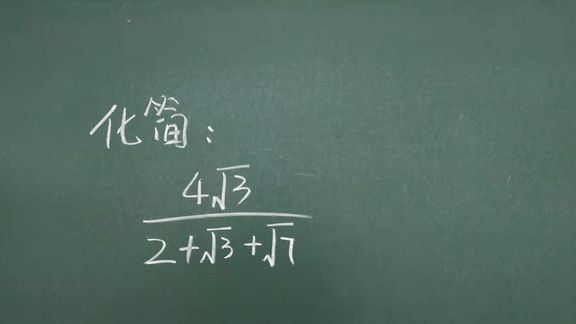 化简：
4√3
2+√3+√7